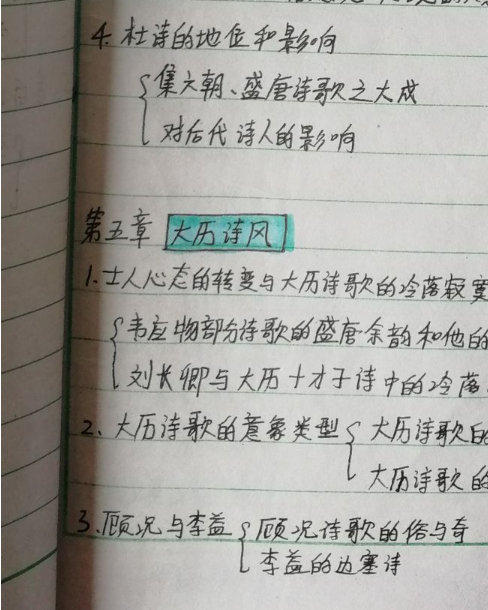 4. 杜诗的地位和影响
集六朝、盛唐诗歌之大成
对后代诗人的影响
第五章 大历诗风
1.士人心态的转变与大历诗歌的冷落寂寞
韦应物部分诗歌的盛唐余韵和他的
刘长卿与大历十才子诗中的冷落
2、大历诗歌的意象类型 大历诗歌的
大历诗歌的
3.顾况与李益 顾况诗歌的俗与奇
李益的边塞诗